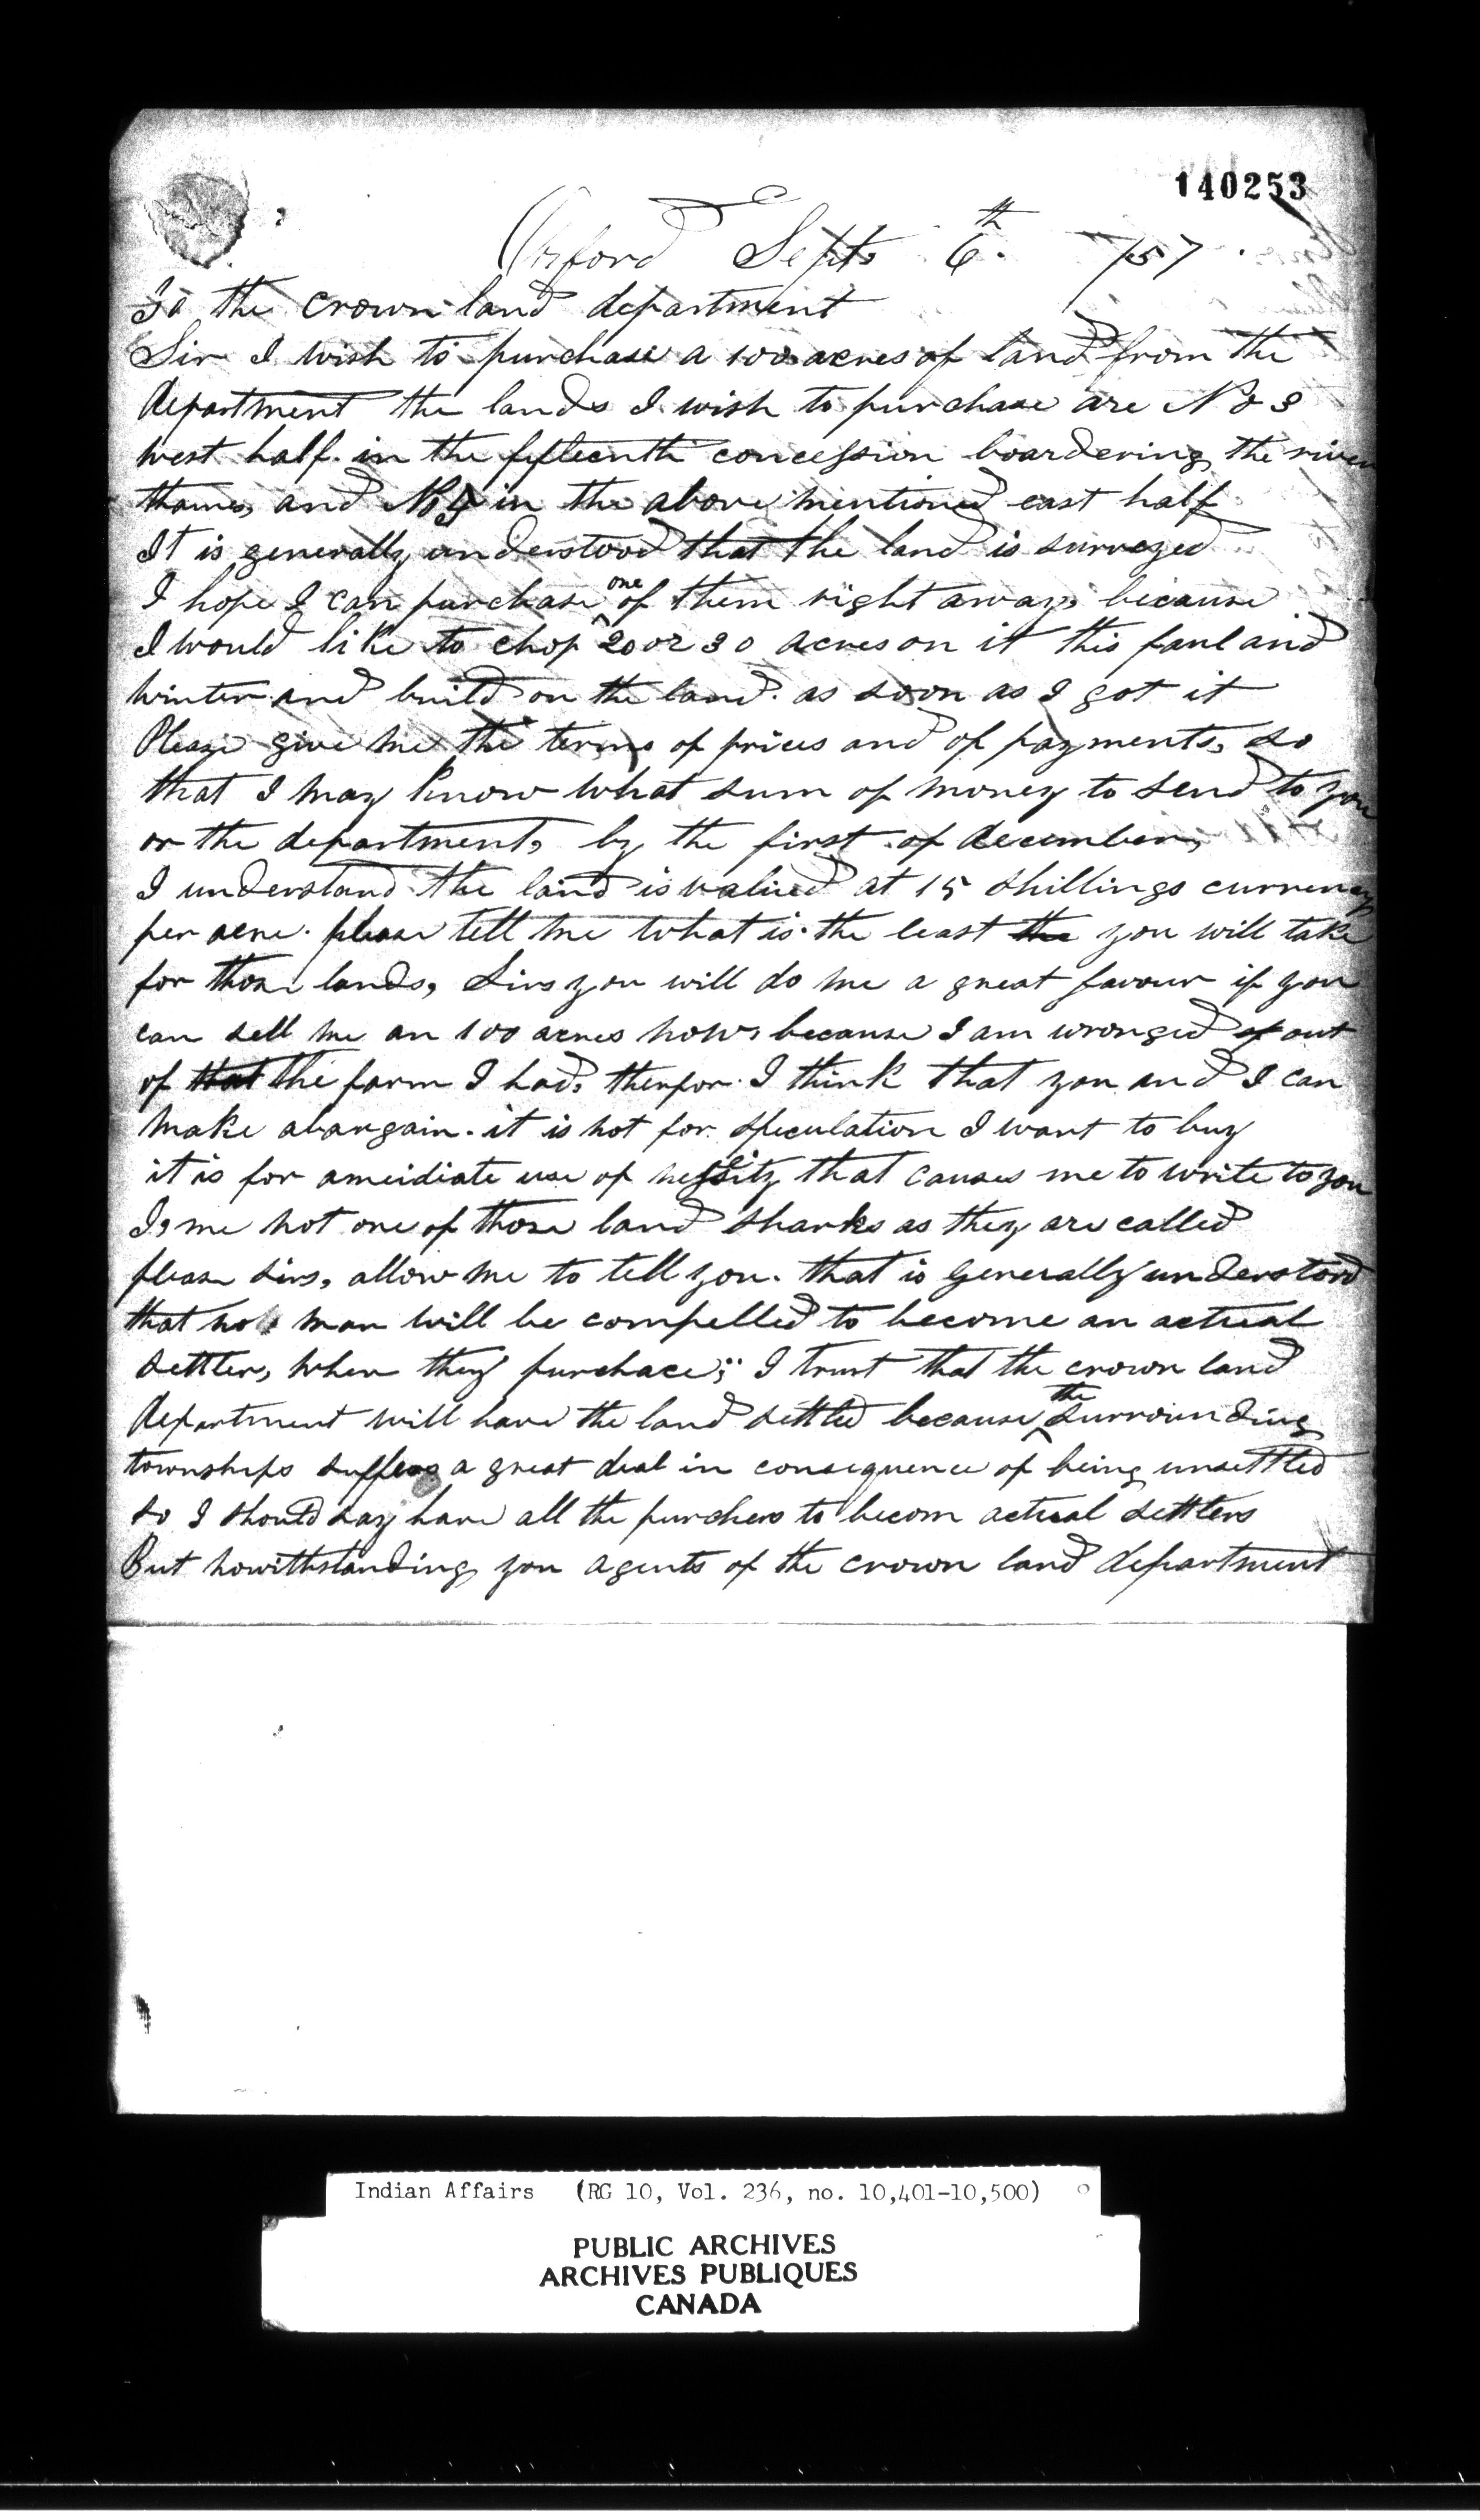 140253
Orford Septs 6th /57
To the crown land department
Sir I wish to purchase a 100 acres of land from the
department the lands I wish to purchase are No 3
west half in the fifteenth concession boardering the river
thames, and No 4 in the above mentioned east half
It is generally understood that the land is surveyed
I hope I can purchase one of them right away, because
I would like to chop 20 or 30 acres on it this faul and
winter and build on the land. as soon as I got it
Please give me the terms of prices and of payments, so
that I may know what sum of money to send to you
or the department, by the first of december,
I understand the land is valued at 15 shillings currency
per acre. please tell me what is the least the you will take
for those lands, Sirs you will do me a great favour if you
can sell me an 100 acres now, because I am wronged of out
of that the farm I had, therfor I think that you and I can
make abargain. it is not for speculation I want to buy
it is for ameidiate use of nessity that causes me to write to you
I, me not one of those land sharks as they are called
please sirs, allow me to tell you. that is generally understood
that no man will be compelled to become an actual
settler, when they purchace; I trust that the crown land
department will have the land settled because the surrounding
townships suffers a great deal in consequence of being unsettled
so I should say have all the purchers to becom actual settlers
But howithstanding you agents of the crown land department
Indian Affairs (RG 10, Vol. 236, no. 10,401-10,500)
PUBLIC ARCHIVES
ARCHIVES PUBLIQUES
CANADA